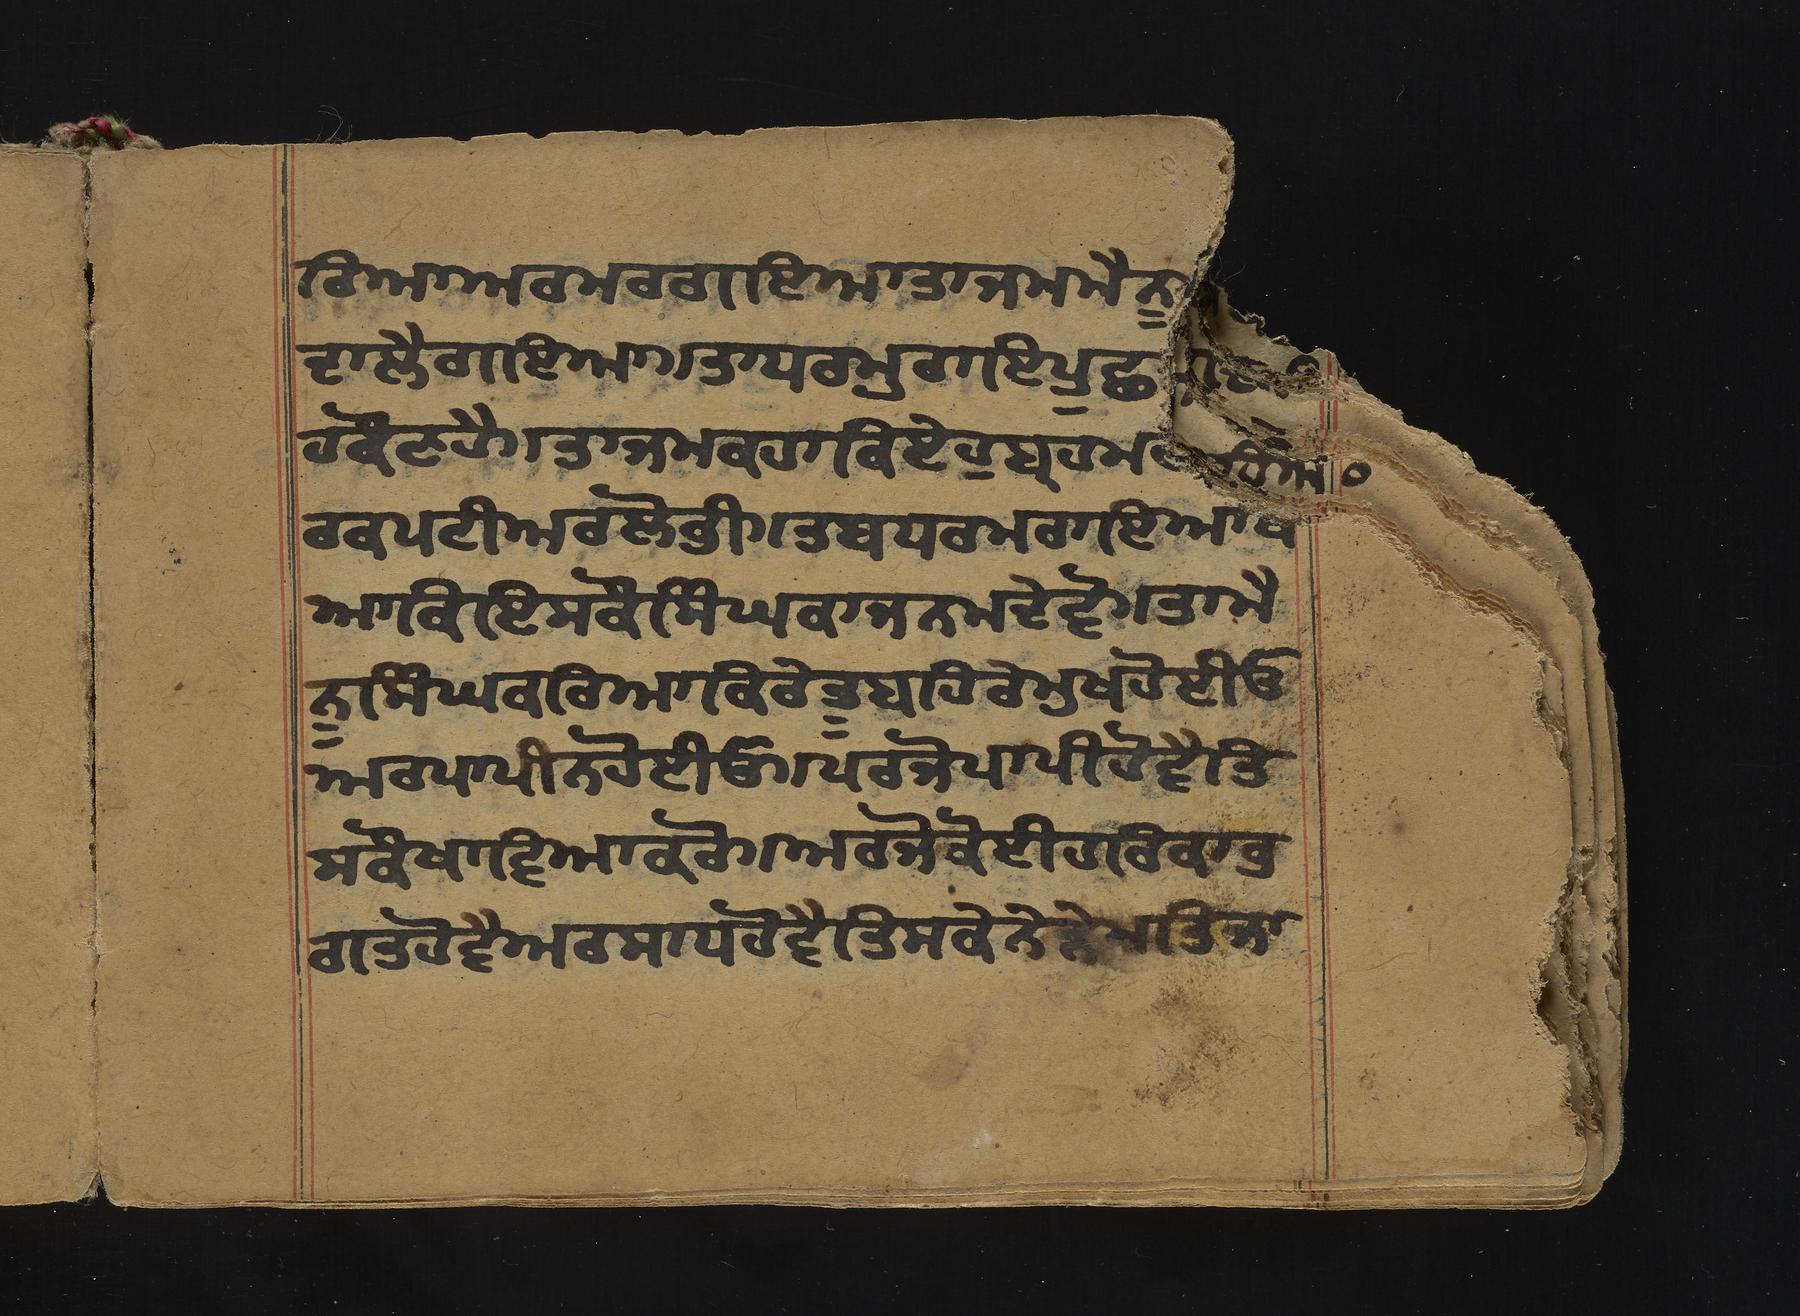 ਰਿਆਅਰਮਰਗਇਆਤਾਜਮਮੈਨੂ
ਦਾਲੈਗਇਆ।ਤਾਧਰਮੁਰਾਇਪੁਛ
ਹਕੌਣਹੈ।ਤਾਜਮਕਹਾਕਿਏਹੁਬ੍ਰਹਮ
ਰਕਪਟੀਅਰਲੋਭੀ।ਤਬਧਰਮਰਾਇਆਖ
ਆਕਿਇਸਕੌਸਿੰਘਕਾਜਨਮਦੇਵੋ।ਤਾਮੈ
ਨੂਸਿੰਘਕਰਿਆਕਿਰੇਤੂਬਾਹਿਰੇਮੁਖਹੋਈਓ
ਅਰਪਾਪੀਨਹੋਈਓ।ਪਰਜੋਪਾਪੀਹੋਵੈਤਿ
ਸਕੌਖਾਵਿਆਕਰੋ।ਅਰਜੋਕੋਈਹਰਿਕਾਭ
ਗਤਹੋਵੈਅਰਸਾਧਹੋਵੈਤਿਸਕੇਨੇੜੇਮਤਿਜਾ